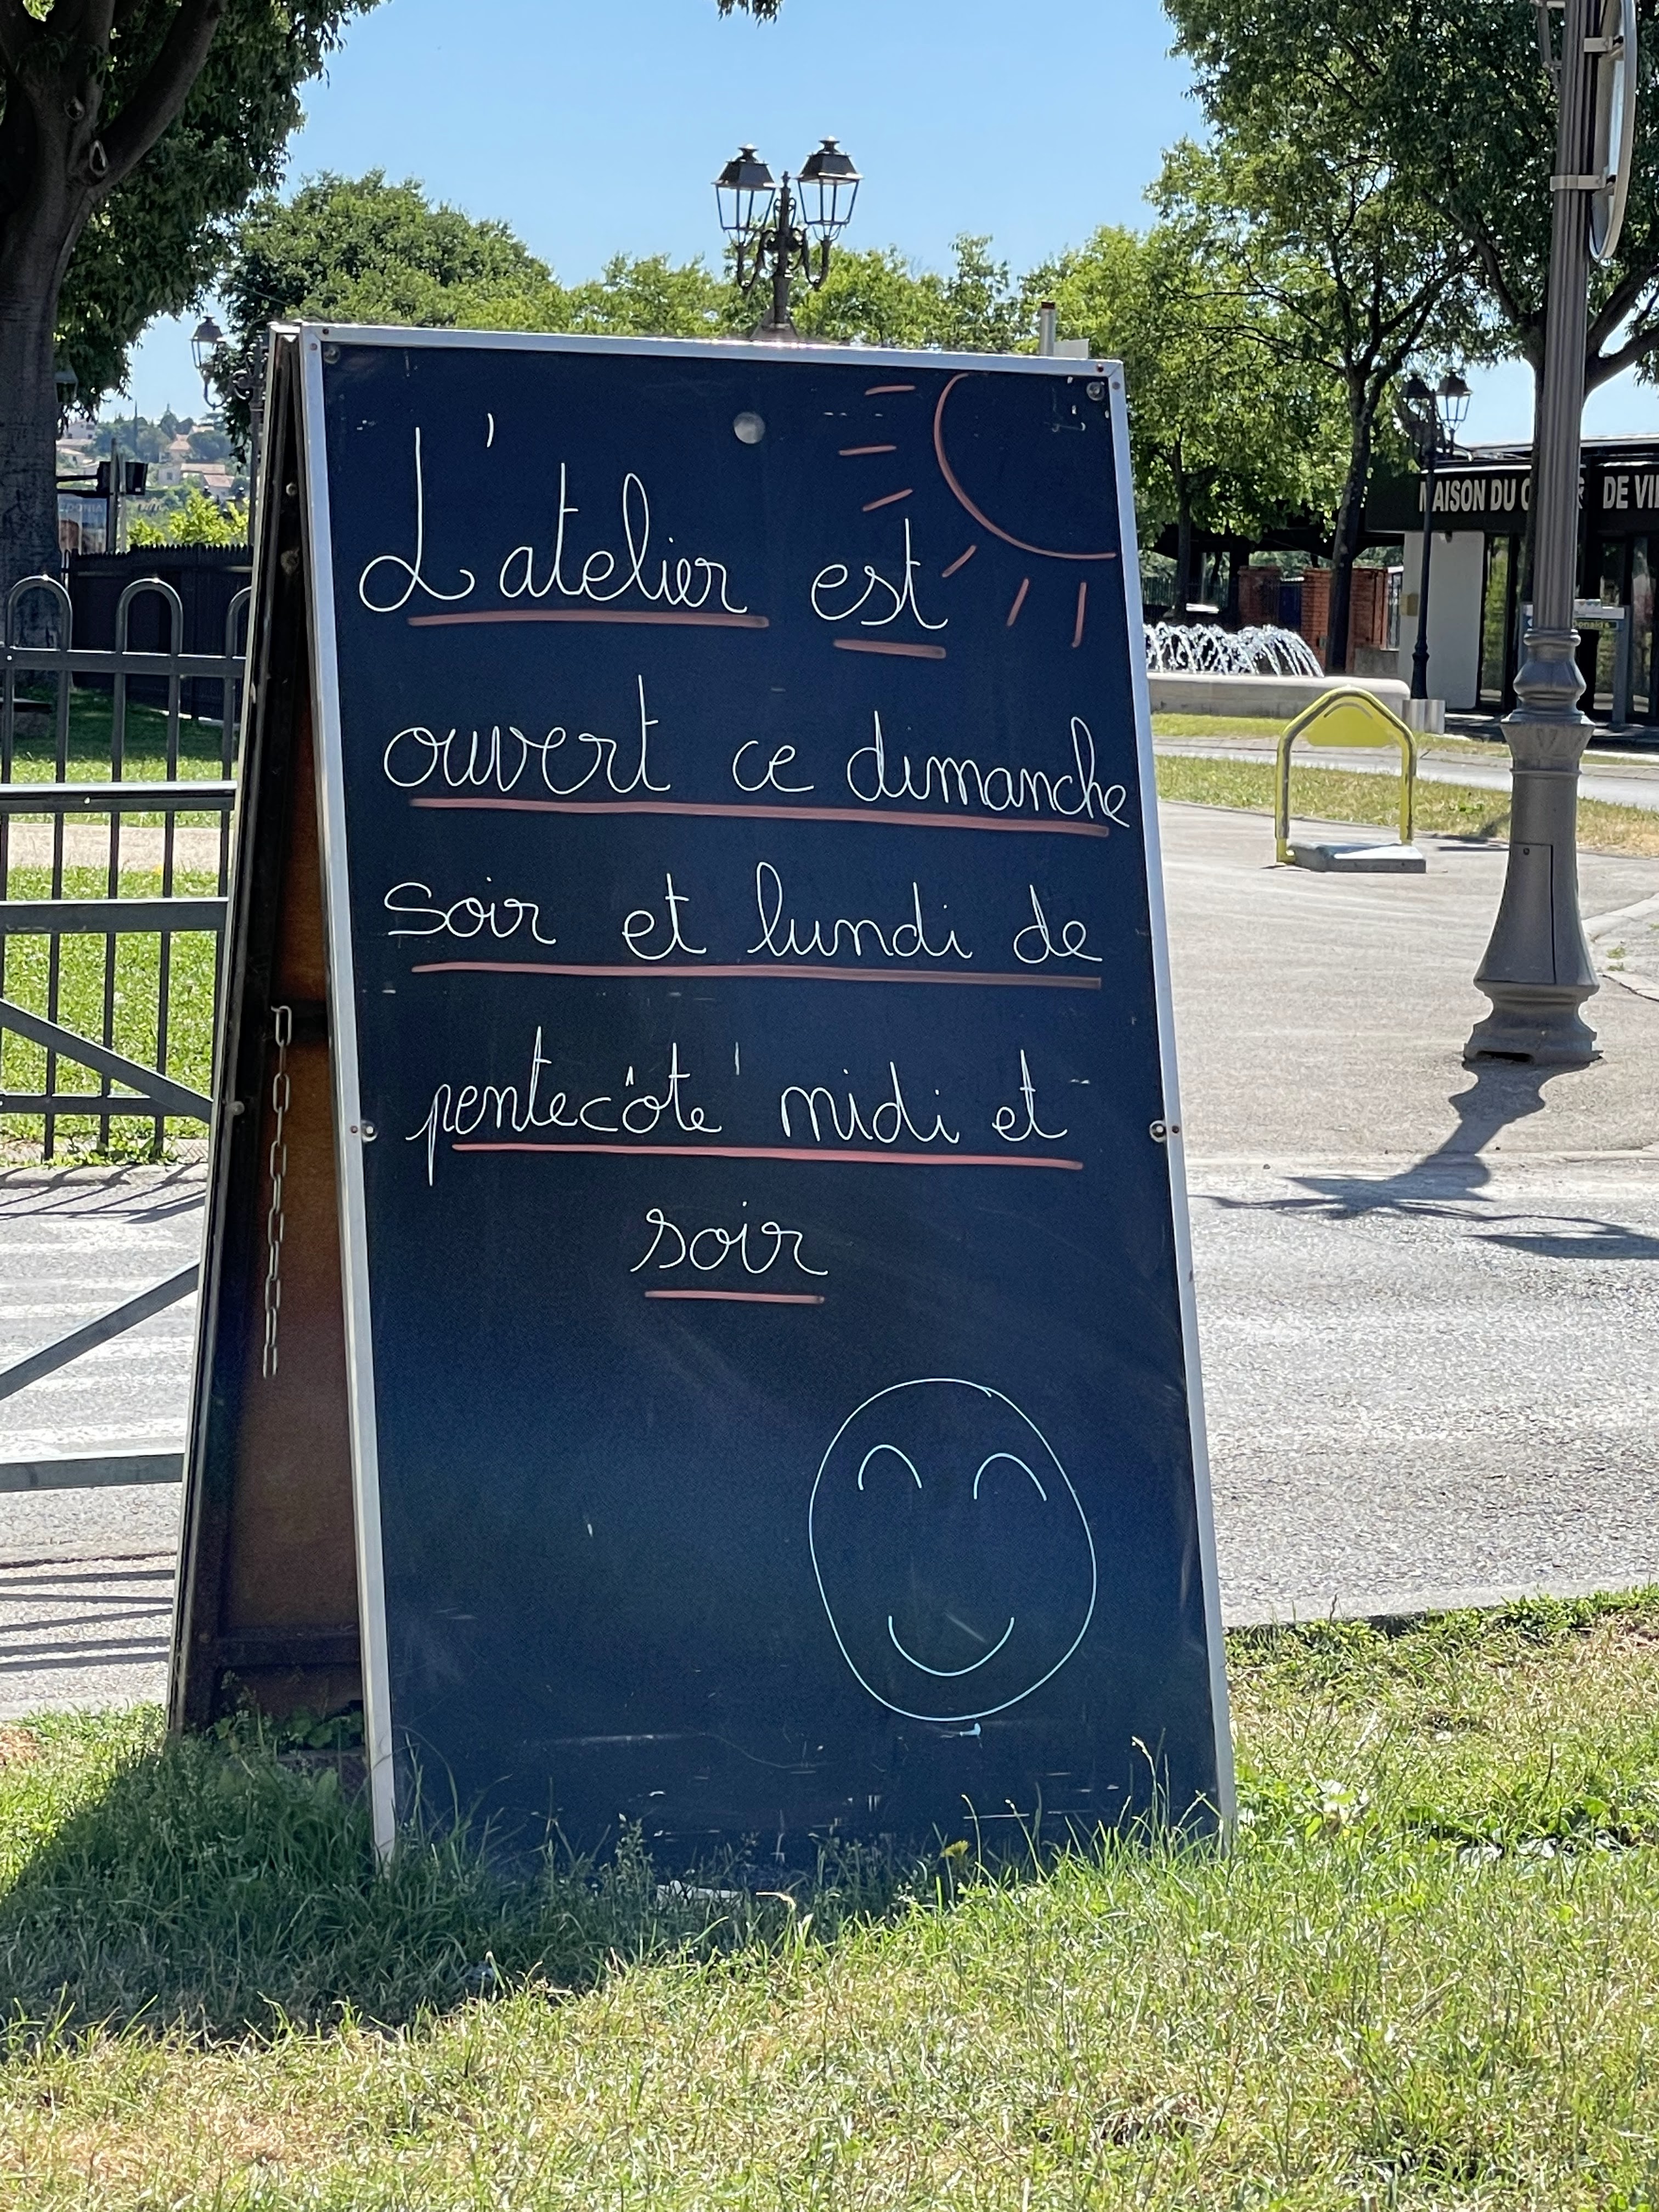 L'atelier est
ouvert ce dimanche
soir et lundi de
pentecôte midi et
soir
MAISON DU
DE